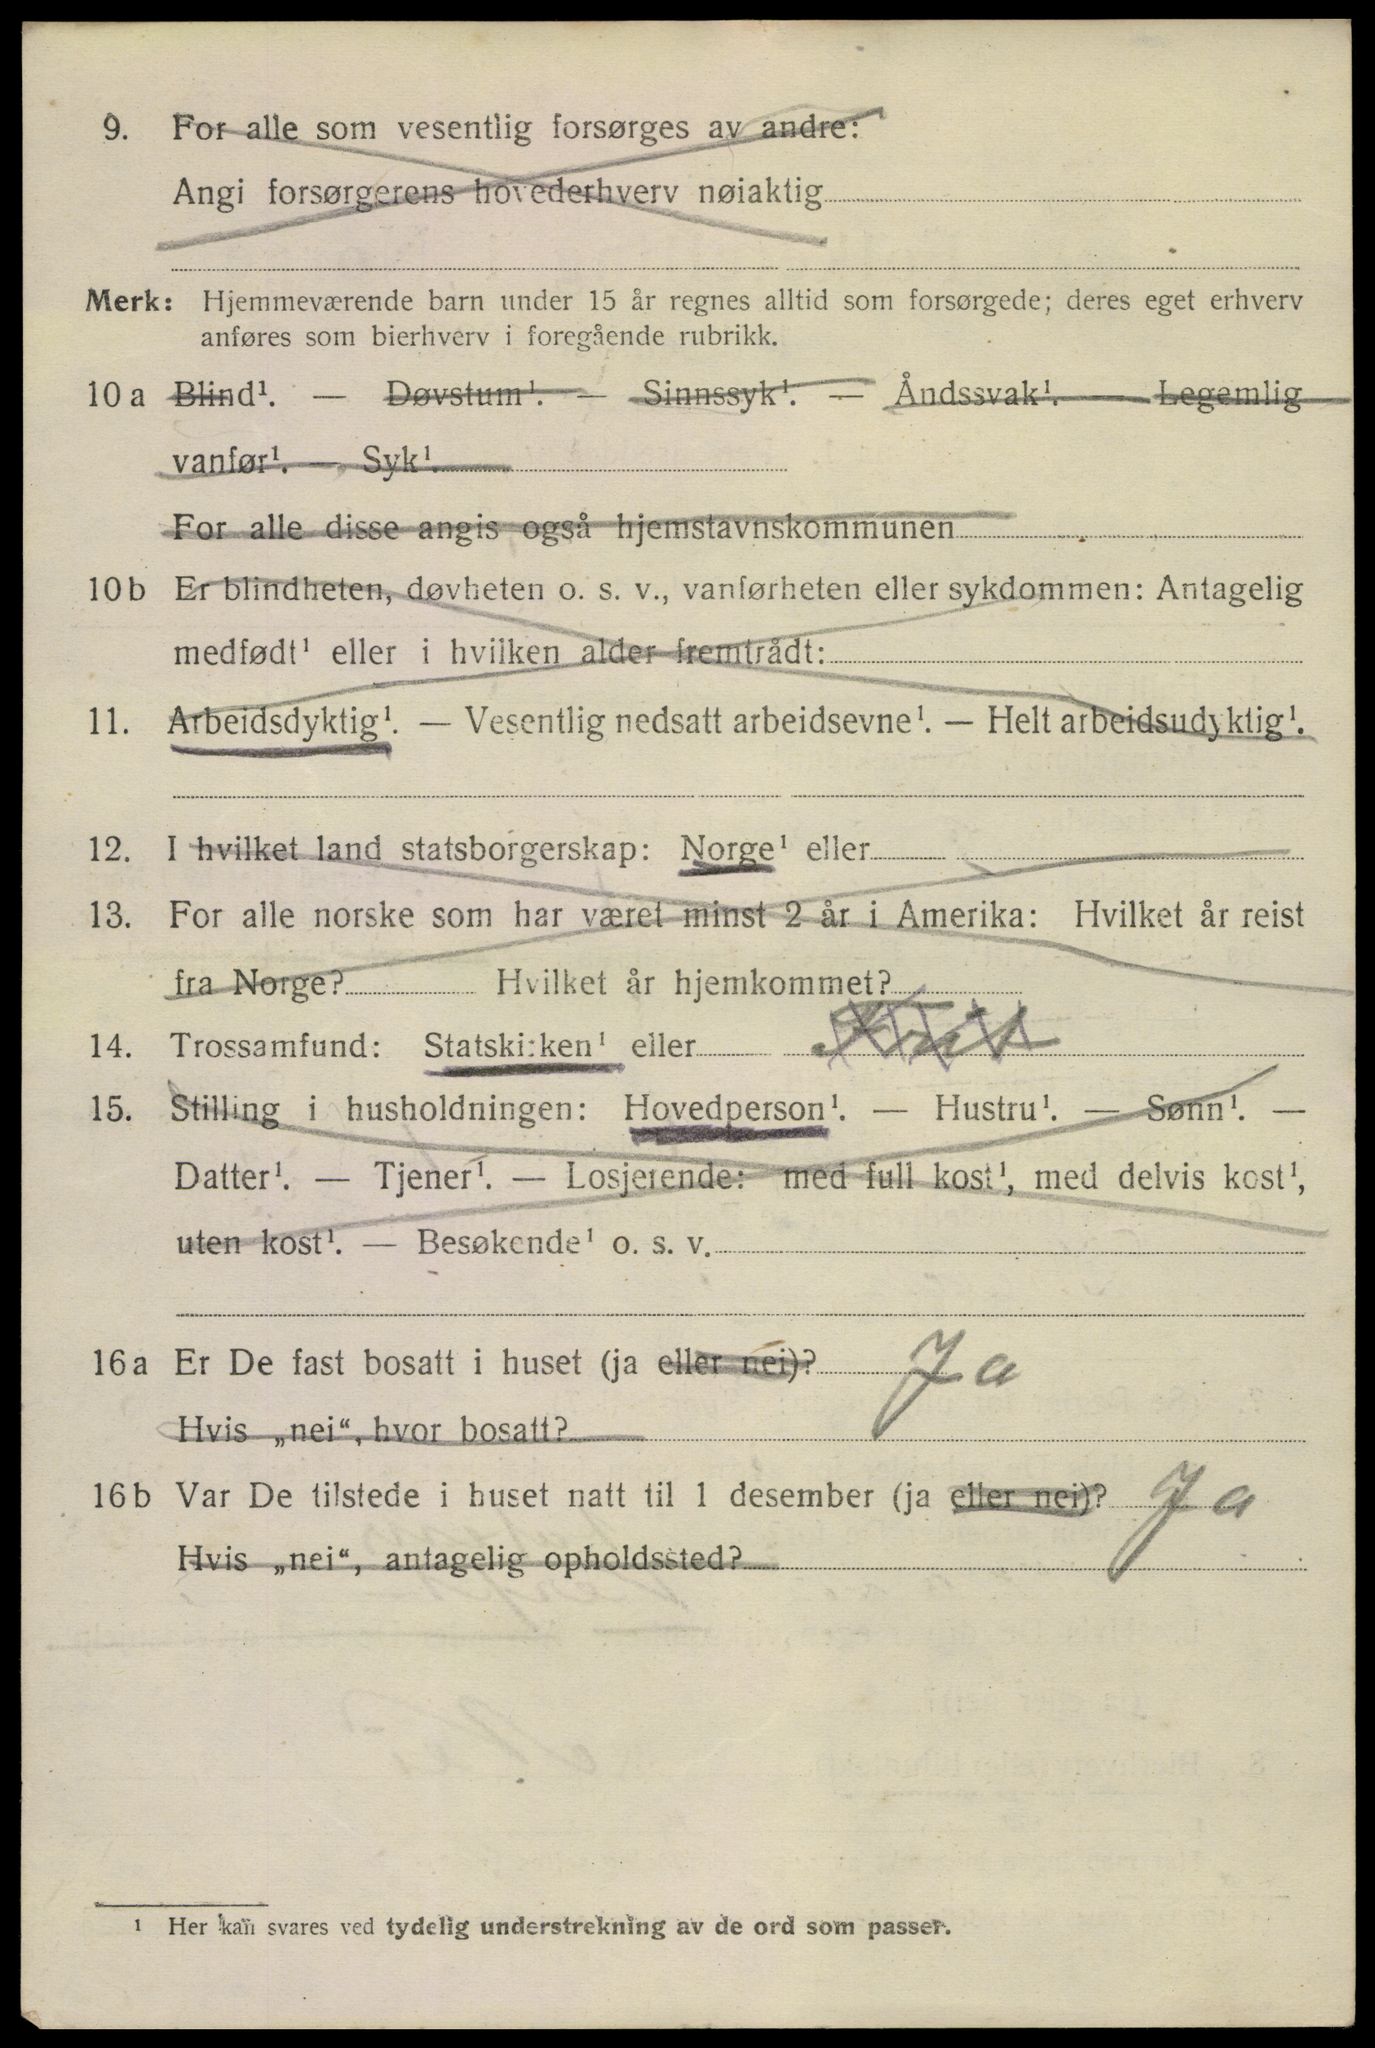 9. For alle som vesentlig forsørges av andre:
Angi forsørgerens hovederhverv nøiaktig
Merk: Hjemmeværende barn under 15 år regnes alltid som forsørgede; deres eget erhverv
anføres som bierhverv i foregående rubrikk.
10a Blind¹. — Døvstum¹. — Sinnssyk¹. — Åndssvak¹. — Legemlig
vanfør¹. — Syk¹.
For alle disse angis også hjemstavnskommunen
10b Er blindheten, døvheten o. s. v., vanførheten eller sykdommen: Antagelig
medfødt¹ eller i hvilken alder fremtrådt:
11. Arbeidsdyktig¹. — Vesentlig nedsatt arbeidsevne¹. — Helt arbeidsudyktig¹.
12. I hvilket land statsborgerskap: Norge¹ eller
13. For alle norske som har været minst 2 år i Amerika: Hvilket år reist
fra Norge? Hvilket år hjemkommet?
14. Trossamfund: Statskirken¹ eller
15. Stilling i husholdningen: Hovedperson¹. — Hustru¹. — Sønn¹. —
Datter¹. — Tjener¹. — Losjerende: med full kost¹, med delvis kost¹,
uten kost¹. — Besøkende¹ o. s. v.
16a Er De fast bosatt i huset (ja eller nei)? Ja
Hvis „nei“, hvor bosatt?
16b Var De tilstede i huset natt til 1 desember (ja eller nei)? Ja
Hvis „nei“, antagelig opholdssted?
¹ Her kan svares ved tydelig understrekning av de ord som passer.